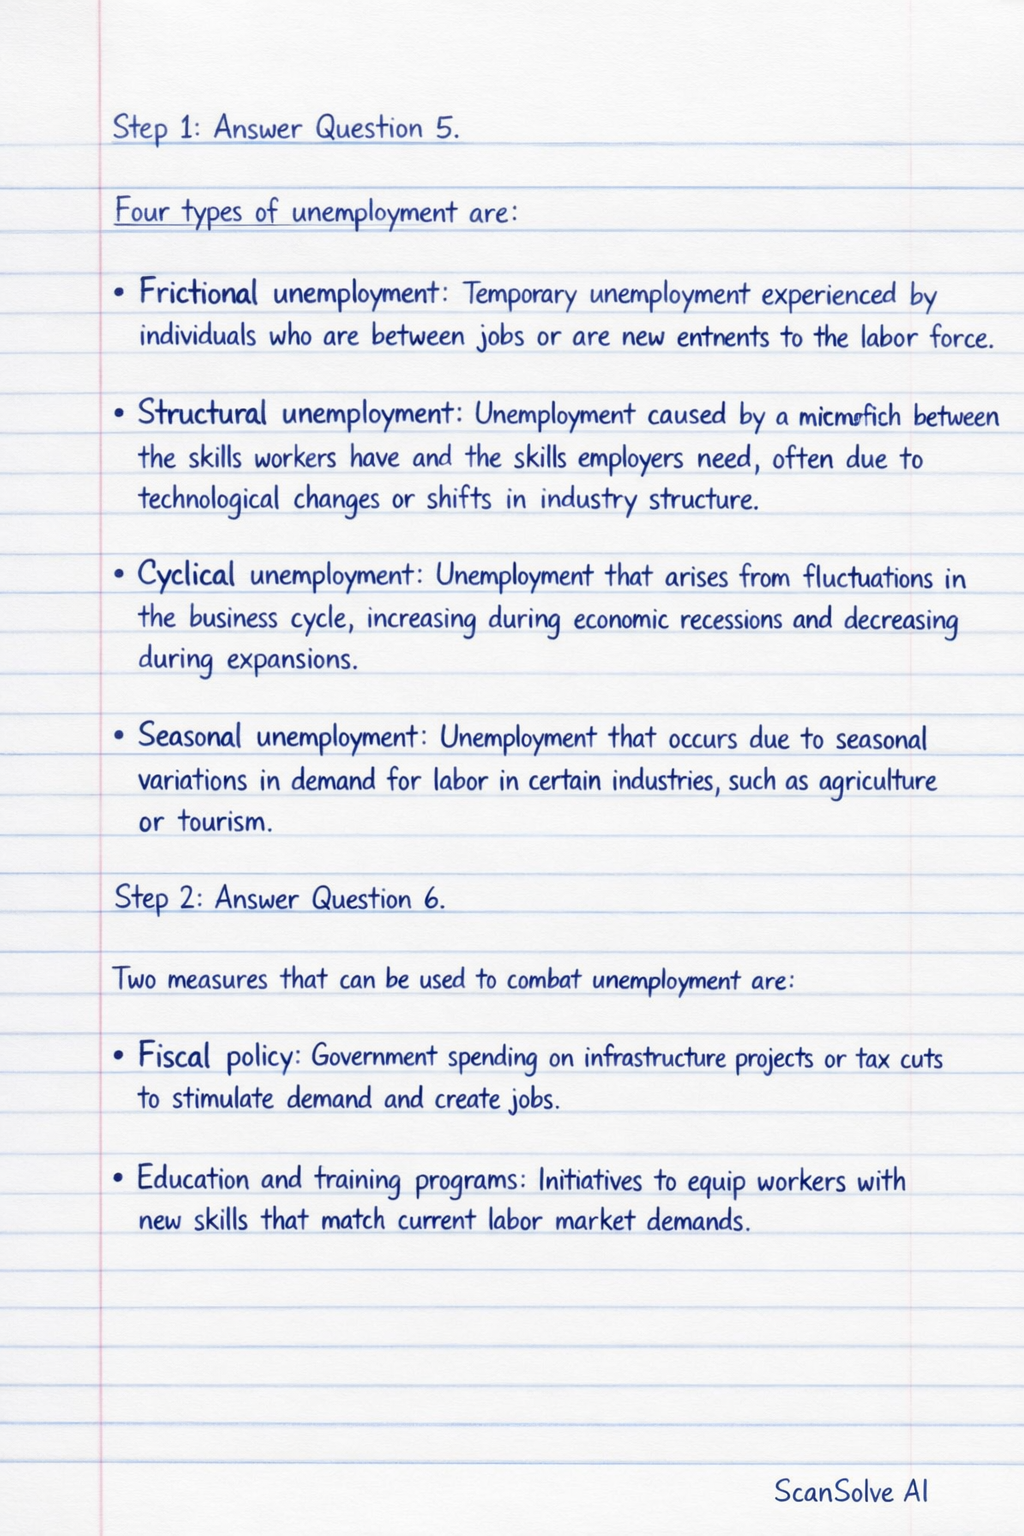 Step 1: Answer Question 5.
Four types of unemployment are:
• Frictional unemployment: Temporary unemployment experienced by
individuals who are between jobs or are new entnents to the labor force.
• Structural unemployment: Unemployment caused by a between
the skills workers have and the skills employers need, often due to
technological changes or shifts in industry structure.
• Cyclical unemployment: Unemployment that arises from fluctuations in
the business cycle, increasing during economic recessions and decreasing
during expansions.
• Seasonal unemployment: Unemployment that occurs due to seasonal
variations in demand for labor in certain industries, such as agriculture
or tourism.
Step 2: Answer Question 6.
Two measures that can be used to combat unemployment are:
• Fiscal policy: Government spending on infrastructure projects or tax cuts
to stimulate demand and create jobs.
• Education and training programs: Initiatives to equip workers with
new skills that match current labor market demands.
ScanSolve AI